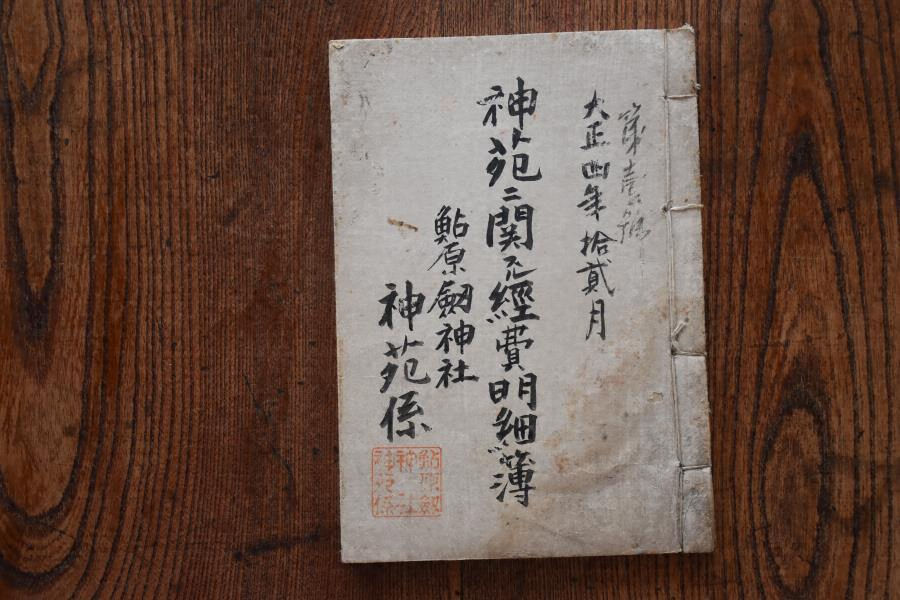 第壹號
大正四年拾貳月
神苑ニ関スル經費明細簿
鮎原剱神社
神苑係
鮎原剱
神社
神苑係